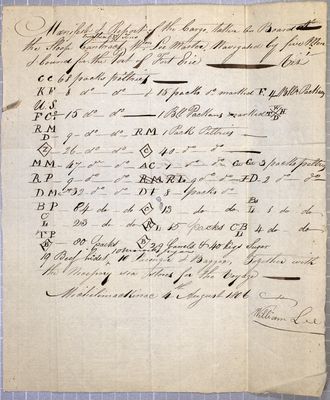 Manifest & Report of the Cargo taken on Board
the Sloop Contract Wm Lee Master, Navigated by five Men
& bound for the Port of Fort Erie
CC 60 packs peltries
KF 8 do do 15 packs do marked F. 4 Bls Peltry
US
FCo 15 do do 1 Bl Packers marked
RM
D 9 do do RM 1 Pack Peltries
Z 26 do do C 40 do do
MM 47 do do AC 7 do do CG 3 packs peltry
RP 9 do do RL 90 do do FD 2 do do
DM 32 do do DI 8 packs do
BP 84 do do 13 do do L 5 do do
C
L 23 do do RL 15 Packs CB 4 do do
TP 80 Packs 29 Barrels & 40 kegs Sugar
19 Beef hides, 10 trunks & Baggage, Together with
the necessary sea stores for the Voyage
Michilimackinac 4th August 1806
William Lee